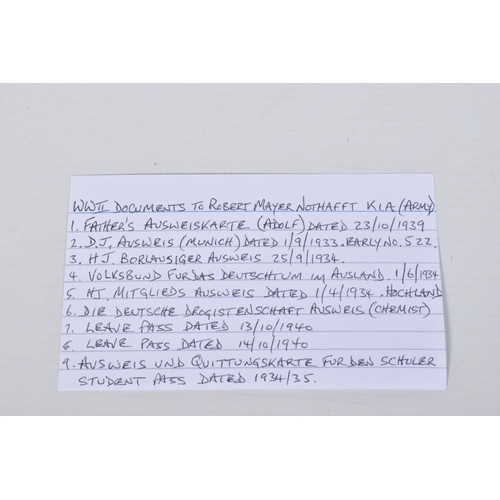 WWII DOCUMENTS TO ROBERT MAYER NOTHAFFT KIA (ARMY)
1. FATHER'S AUSWEISKARTE (ADOLF) DATED 23/10/1939
2. D.J. AUSWEIS (MUNICH) DATED 1/9/1933. EARLY NO. 522.
3. HJ BORLAUSIGER AUSWEIS 25/9/1934.
4. VOLKSBUND FUR DAS DEUTSCHTUM IM AUSLAND 1/6/1934
5. HJ. MITGLIEDS AUSWEIS DATED 1/4/1934. HOCHLAND
6. DIE DEUTSCHE DROGISTENSCHAFT AUSWEIS (CHEMIST)
7. LEAVE PASS DATED 13/10/1940
8. LEAVE PASS DATED 14/10/1940
9. AUSWEIS UND QUITTUNGSKARTE FUR DEN SCHULER
STUDENT PASS DATED 1934/35.